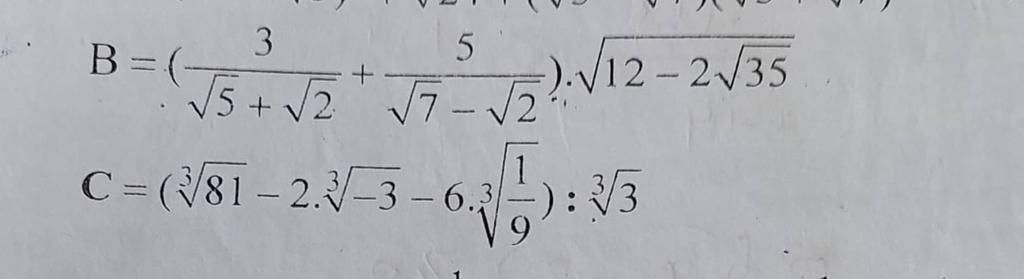 B = (3/(√5 + √2) + 5/(√7 − √2)).√(12 − 2√35)
C = (∛81 − 2.∛−3 − 6.∛(1/9)) : ∛3